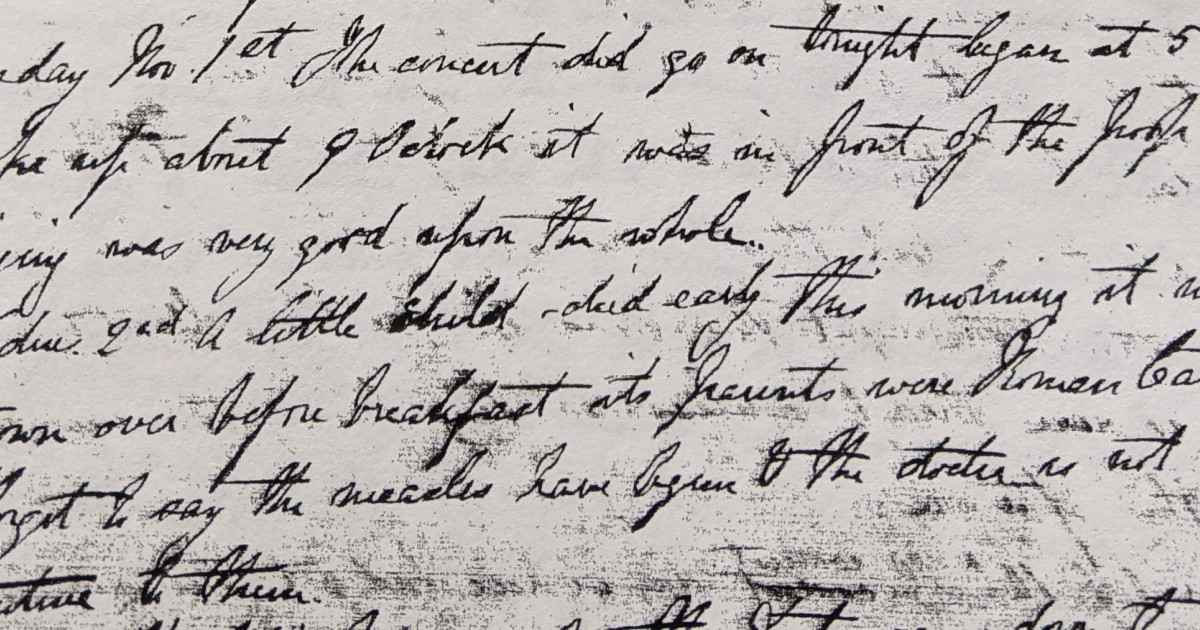 day Nov. 1st The concert did go on tonight began at 5
up about 9 Oclock it was in front of the Poop
was very good upon the whole..
2nd A little child died early this morning it
over before breakfast its parents were Roman Ca
to say the measles have begun & the doctor is not
to them.